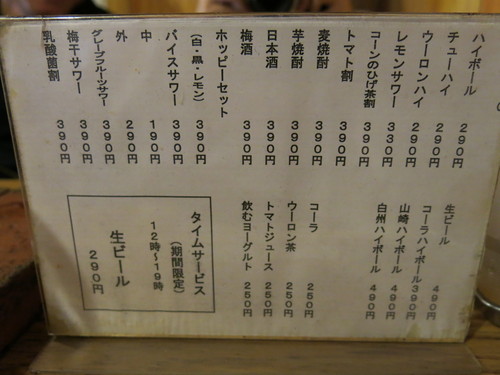 ハイボール 290円
チューハイ 290円
ウーロンハイ 290円
レモンサワー 330円
コーンのひげ茶割 390円
トマト割 390円
麦焼酎 390円
芋焼酎 390円
日本酒 390円
梅酒 390円
ホッピーセット
(白・黒・レモン) 390円
バイスサワー 390円
中 190円
外 290円
グレープフルーツサワー 390円
梅干サワー 390円
乳酸菌割 390円
生ビール 490円
コーラハイボール 390円
山崎ハイボール 490円
白州ハイボール 490円
コーラ 250円
ウーロン茶 250円
トマトジュース 250円
飲むヨーグルト 250円
タイムサービス
(期間限定)
12時～19時
生ビール
290円